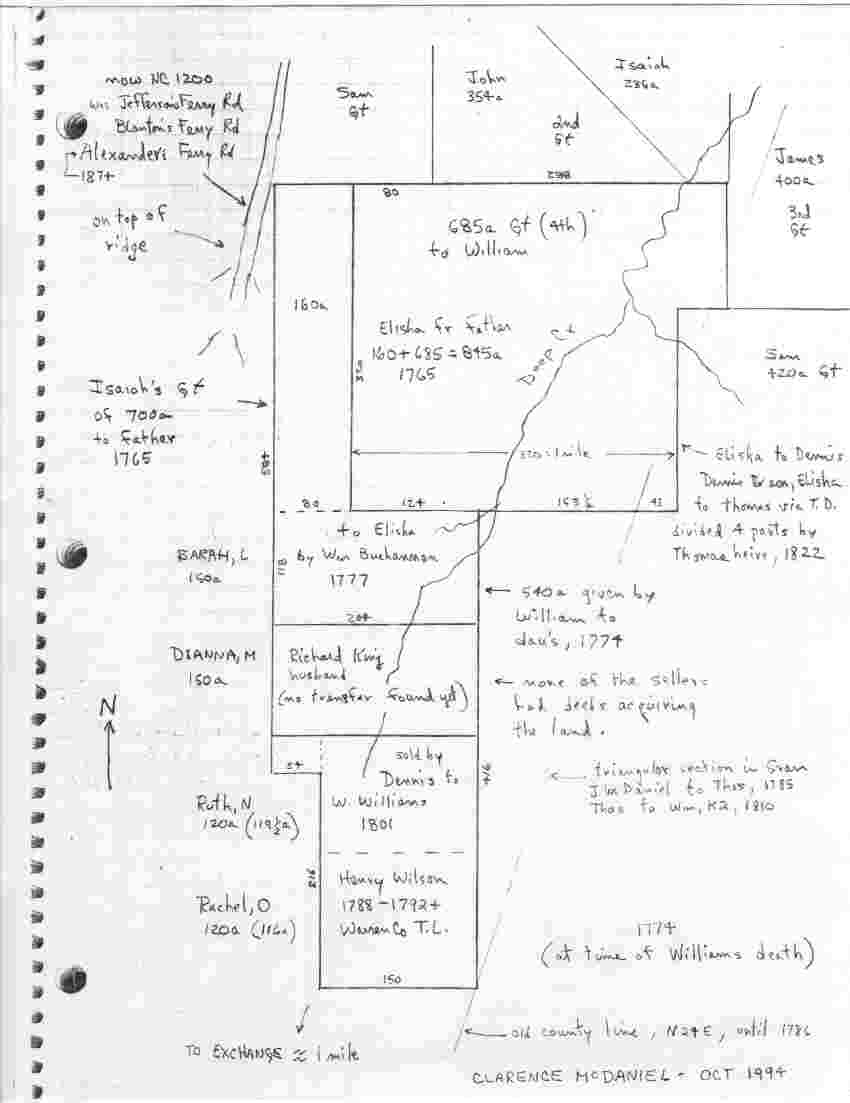 now NC 1200
was Jefferson's Ferry Rd
Blanton's Ferry Rd
Alexander's Ferry Rd
1874
on top of
ridge
Sam
Gt
John
354a
2nd
Gt
Isaiah
286a
James
400a
3rd
Gt
80
288
685a Gt (4th)
to William
160a
Elisha fr Father
160 + 685 = 845a
1765
350
Deep Ck
Sam
420a Gt
Isaiah's Gt
of 700a
to Father
1765
485
320 = 1 mile
Elisha to Dennis
Dennis Elisha
to Thomas via T.D.
divided 4 parts by
Thomas heirs, 1822
80
124
153 ½
43
to Elisha
by Wm Buchannan
1777
118
204
SARAH, L
150a
540a given by
William to
dau's, 1774
DIANNA, M
150a
Richard King
husband
(no transfer found yet)
none of the sellers
had deeds acquiring
the land.
N
54
sold by
Dennis to
W. Williams
1801
416
triangular section in Gran
J. McDaniel to Thos, 1785
Thos to Wm, K2, 1810
Ruth, N
120a (119½a)
Rachel, O
120a (116a)
Henry Wilson
1788 - 1792+
Warren Co T.L.
150
1774
(at time of Williams death)
old county line, N24E, until 1786
TO EXCHANGE ≈ 1 mile
CLARENCE McDANIEL - OCT 1994